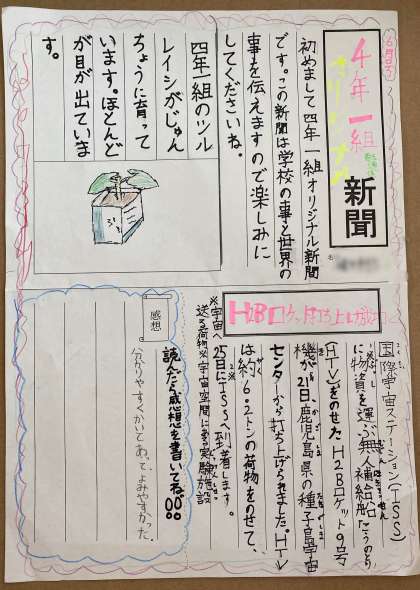 6月号
4年一組
オリジナル
新聞
名
初めまして四年一組オリジナル新聞
です。この新聞は学校の事と世界の
事を伝えますので楽しみに
してくださいね。
四年一組のツル
レイシがじゅん
ちょうに育って
います。ほとんど
が目が出ていま
す。
H2Bロケット打ち上げ成功
国際宇宙ステーション(ISS)
に物資を運ぶ無人補給船こうのとり
(HTV)をのせたH2Bロケット9号
機が21日、鹿児島県の種子島宇宙
センターから打ち上げられました。HTV
は約6.2トンの荷物をのせて、
25日にISSへ到着します。
※宇宙へ
送る荷物※宇宙空間にある実験施設
感想
読んだら感想を書いてね。
分かりやすくかいてあって、よみやすかった。